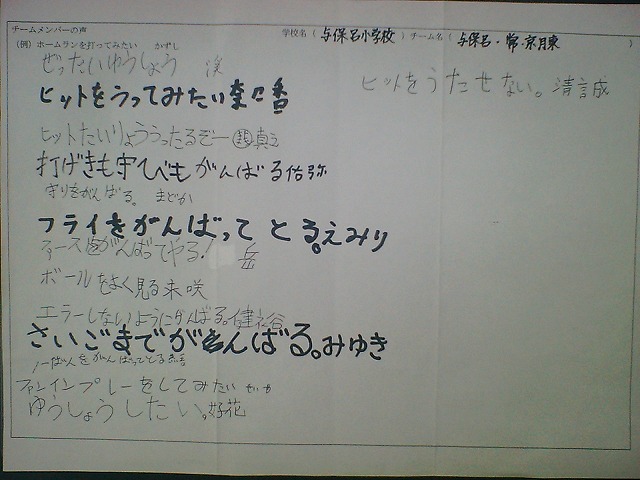 チームメンバーの声
学校名（与保呂小学校）チーム名（与保呂・常・京月東
（例）ホームランを打ってみたい　かずし
ぜったいゆうしょう
ヒットをうってみたい奈々香
ヒットをうたせない。清誠
ヒットたいりょううったるぞー 真之
打げきも守びもがんばる佑弥
守りをがんばる。　まどか
フライをがんばって とる。えみり
ファーストをがんばってやる! 岳
ボールをよく見る 未咲
エラーしないようにがんばる。
さいごまでがんばる。みゆき
をがんばってとる
ファインプレーをしてみたい せいか
ゆうしょうしたい。好花